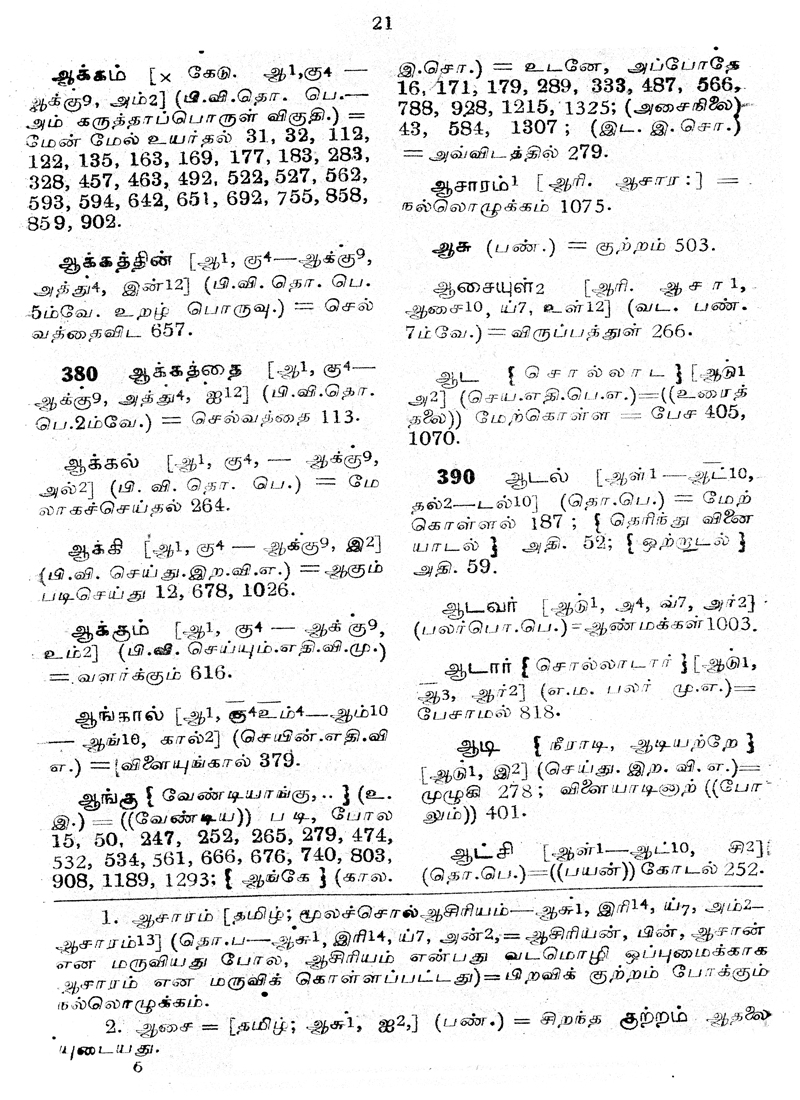 21
ஆக்கம் [× கேடு. ஆ1,கு4 —
ஆக்கு9, அம்2] (பி.வி.தொ. பெ.—
அம் கருத்தாப்பொருள் விகுதி.) =
மேன் மேல் உயர்தல் 31, 32, 112,
122, 135, 163, 169, 177, 183, 283,
328, 457, 463, 492, 522, 527, 562,
593, 594, 642, 651, 692, 755, 858,
859, 902.
ஆக்கத்தின் [ஆ1, கு4—ஆக்கு9,
அத்து4, இன்12] (பி.வி. தொ. பெ.
5ம்வே. உறழ் பொருவு.) = செல்
வத்தைவிட 657.
380 ஆக்கத்தை [ஆ1, கு4—
ஆக்கு9, அத்து4, ஐ12] (பி.வி.தொ.
பெ.2ம்வே.) = செல்வத்தை 113.
ஆக்கல் [ஆ1, கு4, — ஆக்கு9,
அல்2] (பி. வி. தொ. பெ.) = மே
லாகச்செய்தல் 264.
ஆக்கி [ஆ1, கு4 — ஆக்கு9, இ2]
(பி.வி. செய்து.இற.வி.எ.) = ஆகும்
படிசெய்து 12, 678, 1026.
ஆக்கும் [ஆ1, கு4 — ஆக்கு9,
உம்2] (பி.வி. செய்யும்.எதி.வி.மு.)
= வளர்க்கும் 616.
ஆங்கால் [ஆ1, கு4உம்4—ஆம்10
— ஆங்10, கால்2] (செயின்.எதி.வி
எ.) = விளையுங்கால் 379.
ஆங்கு { வேண்டியாங்கு,.. } (உ.
இ.) = ((வேண்டிய)) படி, போல
15, 50, 247, 252, 265, 279, 474,
532, 534, 561, 666, 676, 740, 803,
908, 1189, 1293; { ஆங்கே } (கால.
இ.சொ.) = உடனே, அப்போதே
16, 171, 179, 289, 333, 487, 566,
788, 928, 1215, 1325; (அசைநிலை)
43, 584, 1307 ; (இட. இ. சொ.)
= அவ்விடத்தில் 279.
ஆசாரம்1 [ஆரி. ஆசார :] =
நல்லொழுக்கம் 1075.
ஆசு (பண்.) = குற்றம் 503.
ஆசையுள்2 [ஆரி. ஆசா1,
ஆசை10, ய்7, உள்12] (வட. பண்.
7ம்வே.) = விருப்பத்துள் 266.
ஆட { சொல்லாட } [ஆடு1
அ2] (செய.எதி.பெ.எ.)=((உரைத்
தலை)) மேற்கொள்ள = பேச 405,
1070.
390 ஆடல் [ஆள்1—ஆட்10,
தல்2—டல்10] (தொ.பெ.) = மேற்
கொள்ளல் 187 ; { தெரிந்து வினை
யாடல் } அதி. 52; { ஒற்றாடல் }
அதி. 59.
ஆடவர் [ஆடு1, அ4, வ்7, அர்2]
(பலர்பொ.பெ.)=ஆண்மக்கள் 1003.
ஆடார் { சொல்லாடார் } [ஆடு1,
ஆ3, ஆர்2] (எ.ம. பலர் மு.எ.)=
பேசாமல் 818.
ஆடி { நீராடி, ஆடியற்றே }
[ஆடு1, இ2] (செய்து. இற. வி. எ.)=
முழுகி 278 ; விளையாடினாற் ((போ
லும்)) 401.
ஆட்சி [ஆள்1—ஆட்10, சி2]
(தொ.பெ.)=((பயன்)) கோடல் 252.
1. ஆசாரம் [தமிழ்; மூலச்சொல்ஆசிரியம்—ஆசு1, இரி14, ய்7, அம்2–
ஆசாரம்13] (தொ.ப—ஆசு1, இரி14, ய்7, அன்2,= ஆசிரியன், பின், ஆசான்
என மருவியது போல, ஆசிரியம் என்பது வடமொழி ஒப்புமைக்காக
ஆசாரம் என மருவிக் கொள்ளப்பட்டது)=பிறவிக் குற்றம் போக்கும்
நல்லொழுக்கம்.
2. ஆசை = [தமிழ்; ஆசு1, ஐ2,] (பண்.) = சிறந்த குற்றம் ஆதலை
யுடையது.
6